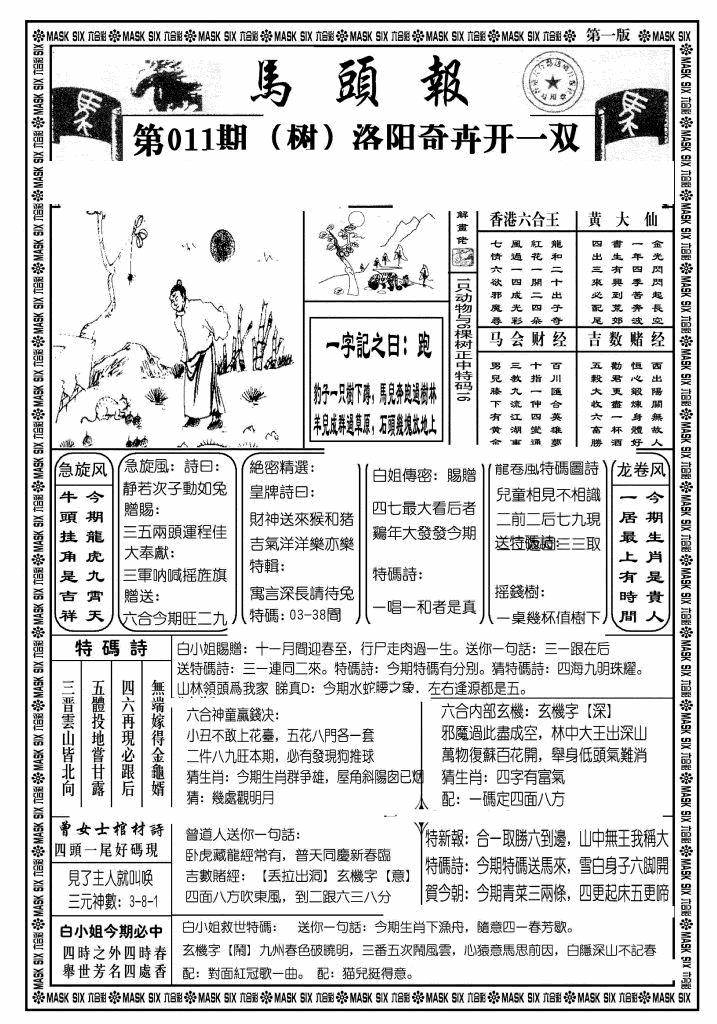 MASK SIX 六合彩
第一版
馬頭報
第011期（树）洛阳奇卉开一双
解畫佬
1只动物与6棵树正中特码16
一字記之曰：跑
豹子一只樹下蹲，馬兒奔跑過樹林
羊兒成群過草原，石頭幾塊放地上
香港六合王
龍和二十出子奇
紅花一開二四朵
風過一四成光彩
七情六欲邪魔尋
黄大仙
金光閃閃起長空
一年四季苦奔波
書生有興到荒郊
四出三來必配尾
马会财经
百川匯合英雄夢
十指一伸四變通
三教九流江湖事
男兒膝下有黄金
吉数赌经
西出陽關無故人
恒心鍛煉身體好
勸君更盡一杯酒
五穀大收六富勝
急旋风
今期龍虎九霄天
牛頭挂角是吉祥
急旋風：詩曰：
静若次子動如兔
贈賜：
三五兩頭運程佳
大奉獻：
三軍呐喊摇旌旗
贈送：
六合今期旺二九
絶密精選：
皇牌詩曰：
財神送來猴和猪
吉氣洋洋樂亦樂
特輯：
寓言深長請待兔
特碼：03-38間
白姐傳密：賜贈
四七最大看后者
鷄年大發發今期
特碼詩：
一唱一和者是真
龍卷風特碼圖詩
兒童相見不相識
二前二后七九現
送特碼詩：三三取
摇錢樹：
一桌幾杯值樹下
龙卷风
今期生肖是貴人
一居最上有時間
特碼詩
無端嫁得金龜婿
四六再現必跟后
五體投地嘗甘露
三晋雲山皆北向
白小姐賜贈：十一月間迎春至，行尸走肉過一生。送你一句話：三一跟在后
送特碼詩：三一連同二來。特碼詩：今期特碼有分别。猜特碼詩：四海九明珠耀。
山林領頭爲我家 睇真D：今期水蛇腰之象，左右逢源都是五。
六合神童赢錢决：
小丑不敢上花臺，五花八門各一套
二件八九旺本期，必有發現狗推球
猜生肖：今期生肖群争雄，屋角斜陽卤已烟
猜：幾處觀明月
六合内部玄機：玄機字【深】
邪魔過此盡成空，林中大王出深山
萬物復蘇百花開，舉身低頭氣難消
猜生肖：四字有富氣
配：一碼定四面八方
曾女士棺材詩
四頭一尾好碼現
見了主人就叫唤
三元神數：3-8-1
曾道人送你一句話：
卧虎藏龍經常有，普天同慶新春臨
吉數賭經：【丢拉出洞】玄機字【意】
四面八方吹東風，到二跟六三八分
特新報：合一取勝六到邊，山中無王我稱大
特碼詩：今期特碼送馬來，雪白身子六脚開
賀今朝：今期青菜三兩條，四更起床五更啼
白小姐今期必中
四時之外四時春
舉世芳名四處香
白小姐救世特碼： 送你一句話：今期生肖下漁舟，隨意四一春芳歇。
玄機字【鬧】九州春色破曉明，三番五次鬧風雲，心猿意馬思前因，白隱深山不記春
配：對面紅冠歌一曲。 配：猫兒挺得意。